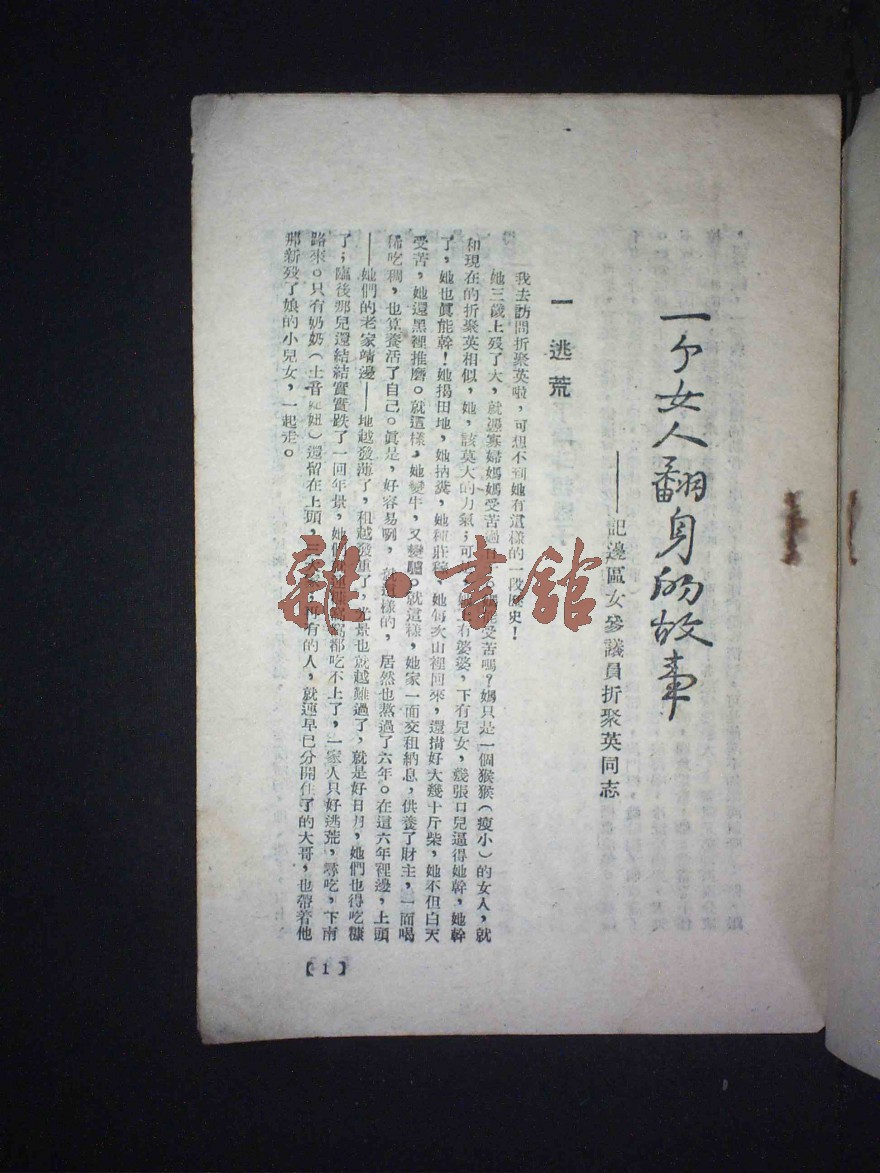 一个女人翻身的故事
——記邊區女參議員折聚英同志
一 逃荒
我去訪問折聚英啦，可想不到她有這樣的一段歷史！
她三歲上歿了大，就憑寡婦媽媽受苦過 受苦嗎？媽只是一個猴猴（瘦小）的女人，就
和現在的折聚英相似，她，該莫大的力氣；可 上有婆婆，下有兒女，幾張口兒逼得她幹，她幹
了，她也眞能幹！她揭田地，她抐糞，她種莊稼 她每次山裡回來，還揹好大幾十斤柴，她不但白天
受苦，她還黑裡推磨。就這樣，她變牛，又變驢。就這樣，她家一面交租納息，供養了財主，一面喝
稀吃稠，也算養活了自己。眞是，好容易咧， 這樣的，居然也熬過了六年。在這六年裡邊，上頭
——她們的老家靖邊——地越發薄了，租越發重了，光景也就越難過了，就是好日月，她們也得吃糠
了；臨後那兒還結結實實跌了一回年景，她們 都吃不上了，一家人只好逃荒，尋吃，下南
路來。只有奶奶（土音 妞）還留在上頭， 有的人，就連早已分開住了的大哥，也帶着他
那新歿了娘的小兒女，一起走。
【1】
雜·書館